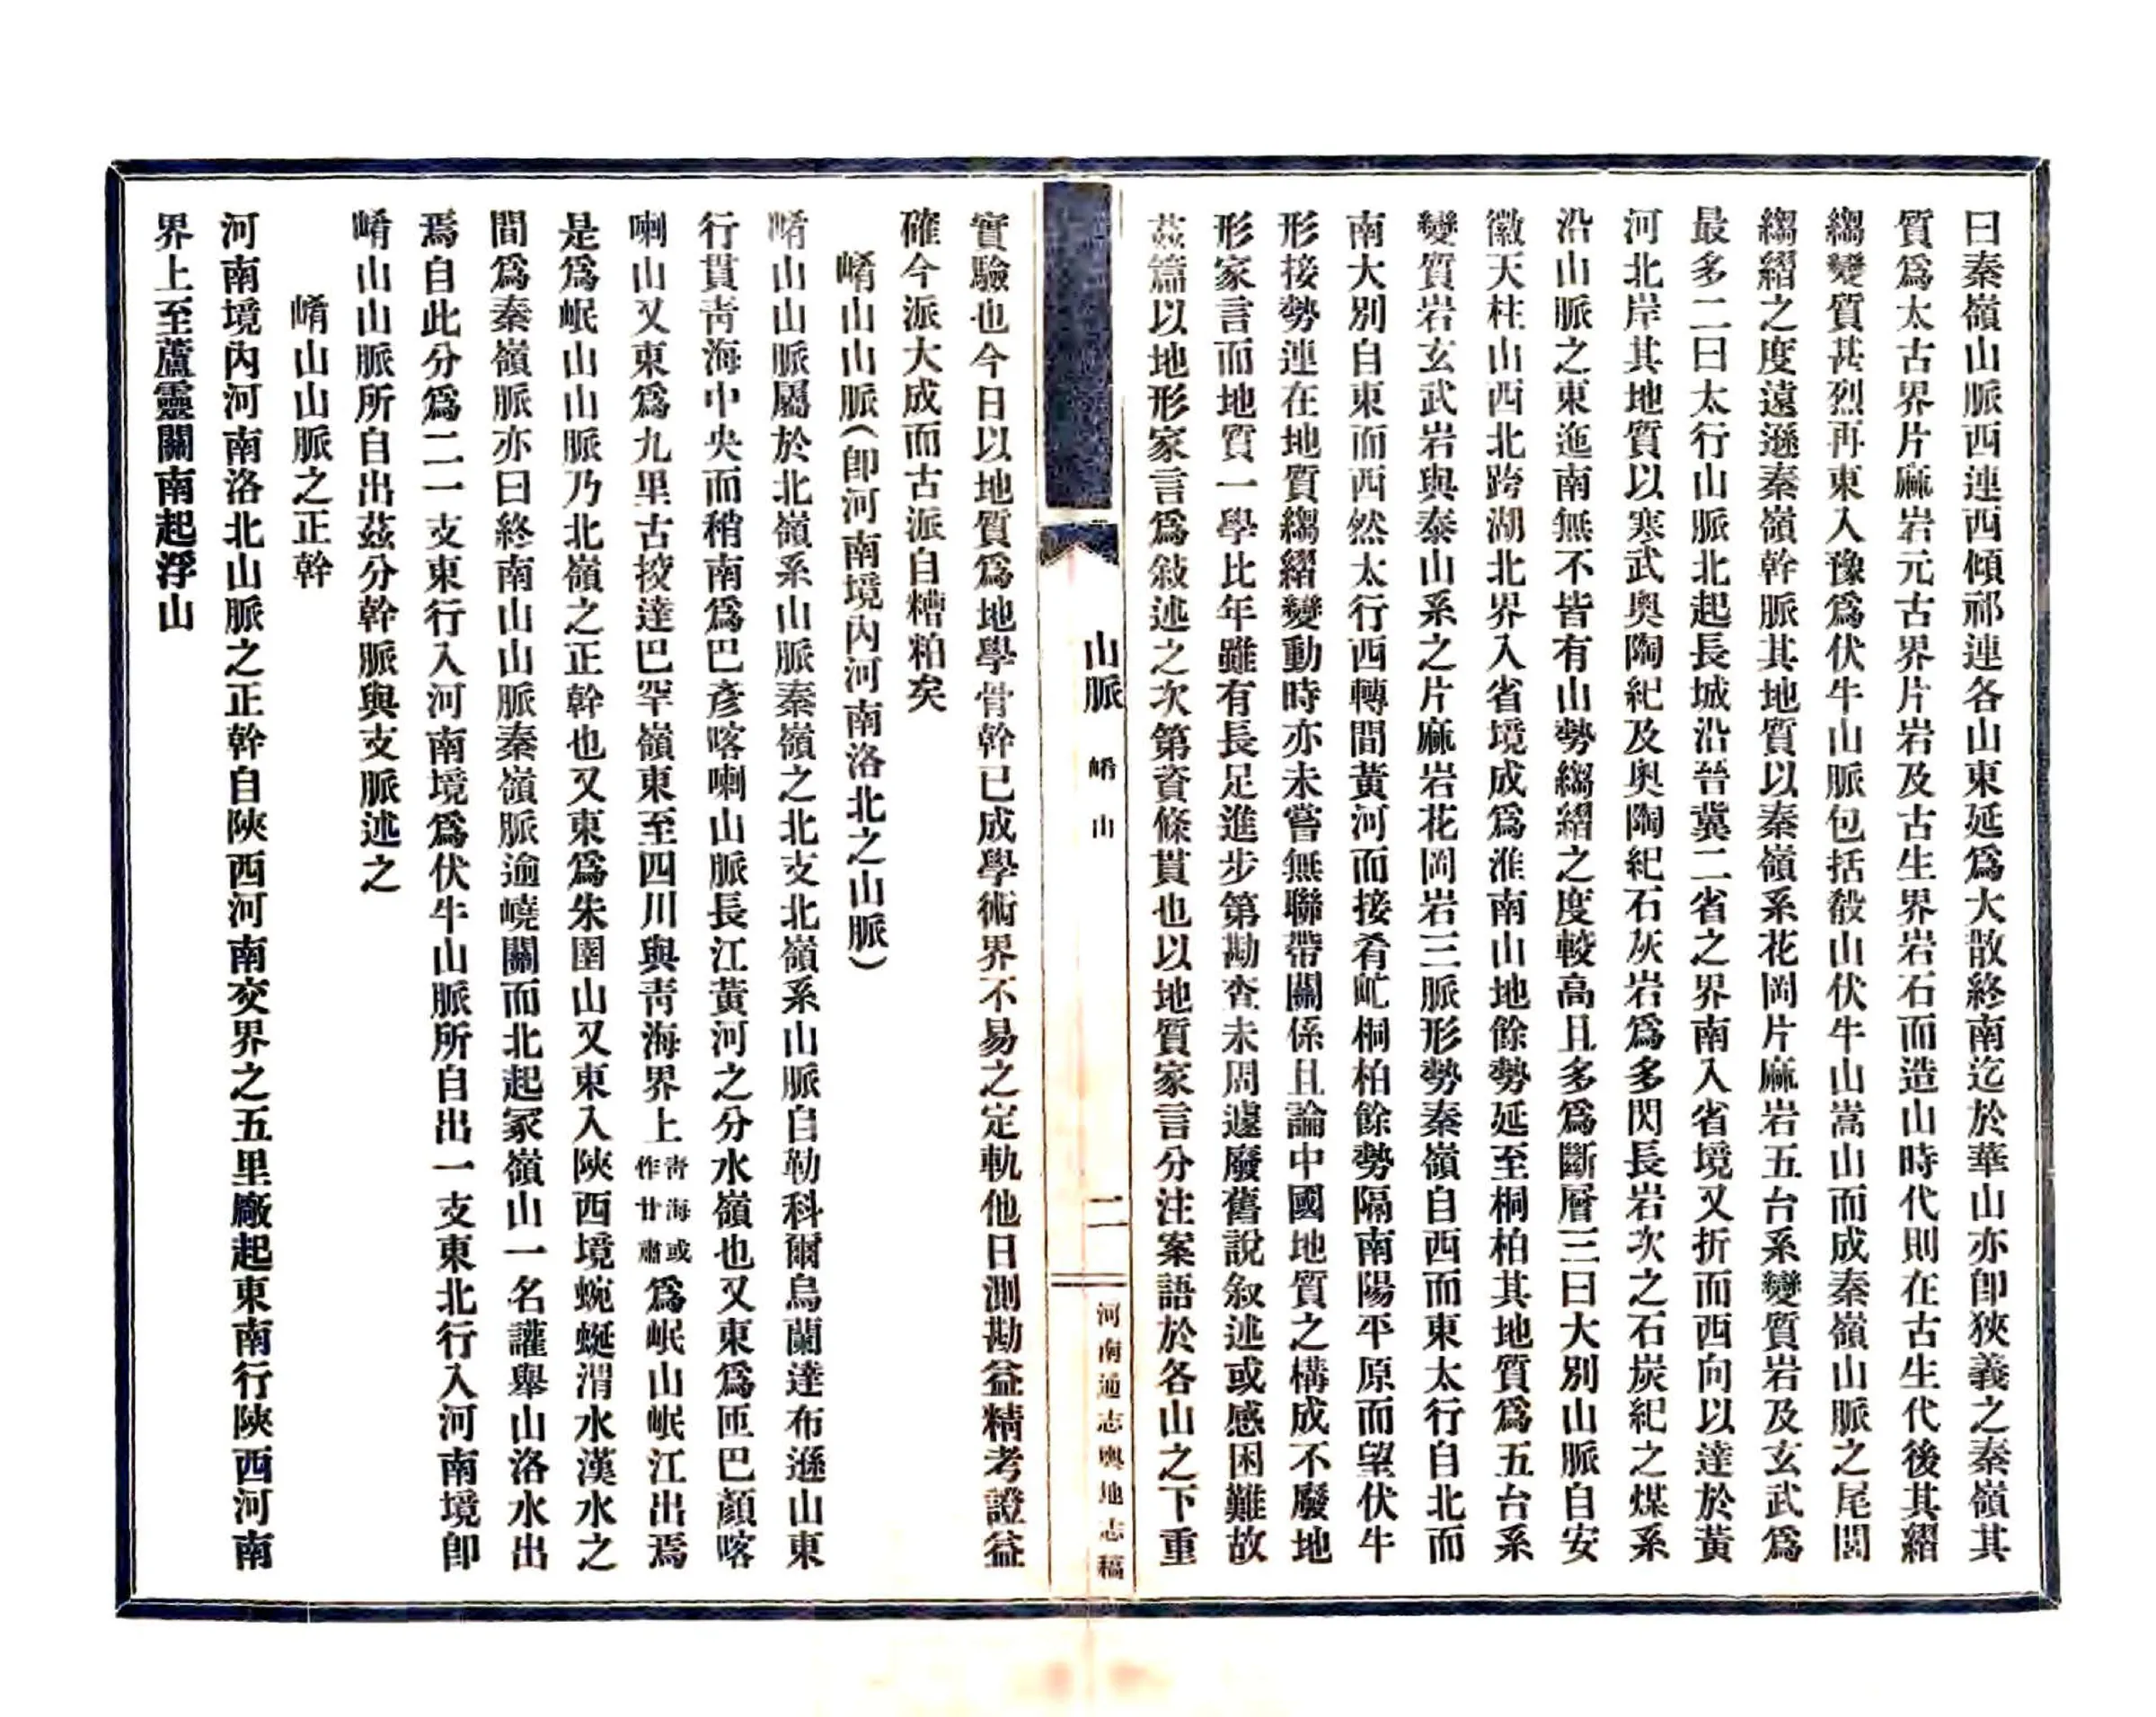 曰秦嶺山脈西連西傾祁連各山東延爲大散終南迄於華山亦卽狹義之秦嶺其
質爲太古界片麻岩元古界片岩及古生界岩石而造山時代則在古生代後其縐
縐變質甚烈再東入豫爲伏牛山脈包括殽山伏牛山嵩山而成秦嶺山脈之尾閭
縐縐之度遠遜秦嶺幹脈其地質以秦嶺系花岡片麻岩五台系變質岩及玄武爲
最多二曰太行山脈北起長城沿晉冀二省之界南入省境又折而西向以達於黃
河北岸其地質以寒武奧陶紀及奧陶紀石灰岩爲多閃長岩次之石炭紀之煤系
沿山脈之東迤南無不皆有山勢縐縐之度較高且多爲斷層三曰大別山脈自安
徽天柱山西北跨湖北界入省境成爲淮南山地餘勢延至桐柏其地質爲五台系
變質岩玄武岩與泰山系之片麻岩花岡岩三脈形勢秦嶺自西而東太行自北而
南大別自東而西然太行西轉間黃河而接肴屺桐柏餘勢隔南陽平原而望伏牛
形接勢連在地質縐縐變動時亦未嘗無聯帶關係且論中國地質之構成不廢地
形家言而地質一學比年雖有長足進步第勘查未周遽廢舊說叙述或感困難故
茲篇以地形家言爲敍述之次第資條貫也以地質家言分注案語於各山之下重
山脈 崤山 二 河南通志輿地志稿
實驗也今日以地質爲地學骨幹已成學術界不易之定軌他日測勘益精考證益
確今派大成而古派自糟粕矣
崤山山脈(卽河南境內河南洛北之山脈)
崤山山脈屬於北嶺系山脈秦嶺之北支北嶺系山脈自勒科爾烏蘭達布遜山東
行貫靑海中央而稍南爲巴彥喀喇山脈長江黃河之分水嶺也又東爲匝巴顏喀
喇山又東爲九里古挍達巴罕嶺東至四川與靑海界上靑海或作甘肅爲岷山岷江出焉
是爲岷山山脈乃北嶺之正幹也又東爲朱圉山又東入陝西境蜿蜒渭水漢水之
間爲秦嶺脈亦曰終南山山脈秦嶺脈逾嶢關而北起冢嶺山一名讙舉山洛水出
焉自此分爲二一支東行入河南境爲伏牛山脈所自出一支東北行入河南境卽
崤山山脈所自出茲分幹脈與支脈述之
崤山山脈之正幹
河南境內河南洛北山脈之正幹自陝西河南交界之五里廠起東南行陝西河南
界上至蘆靈關南起浮山